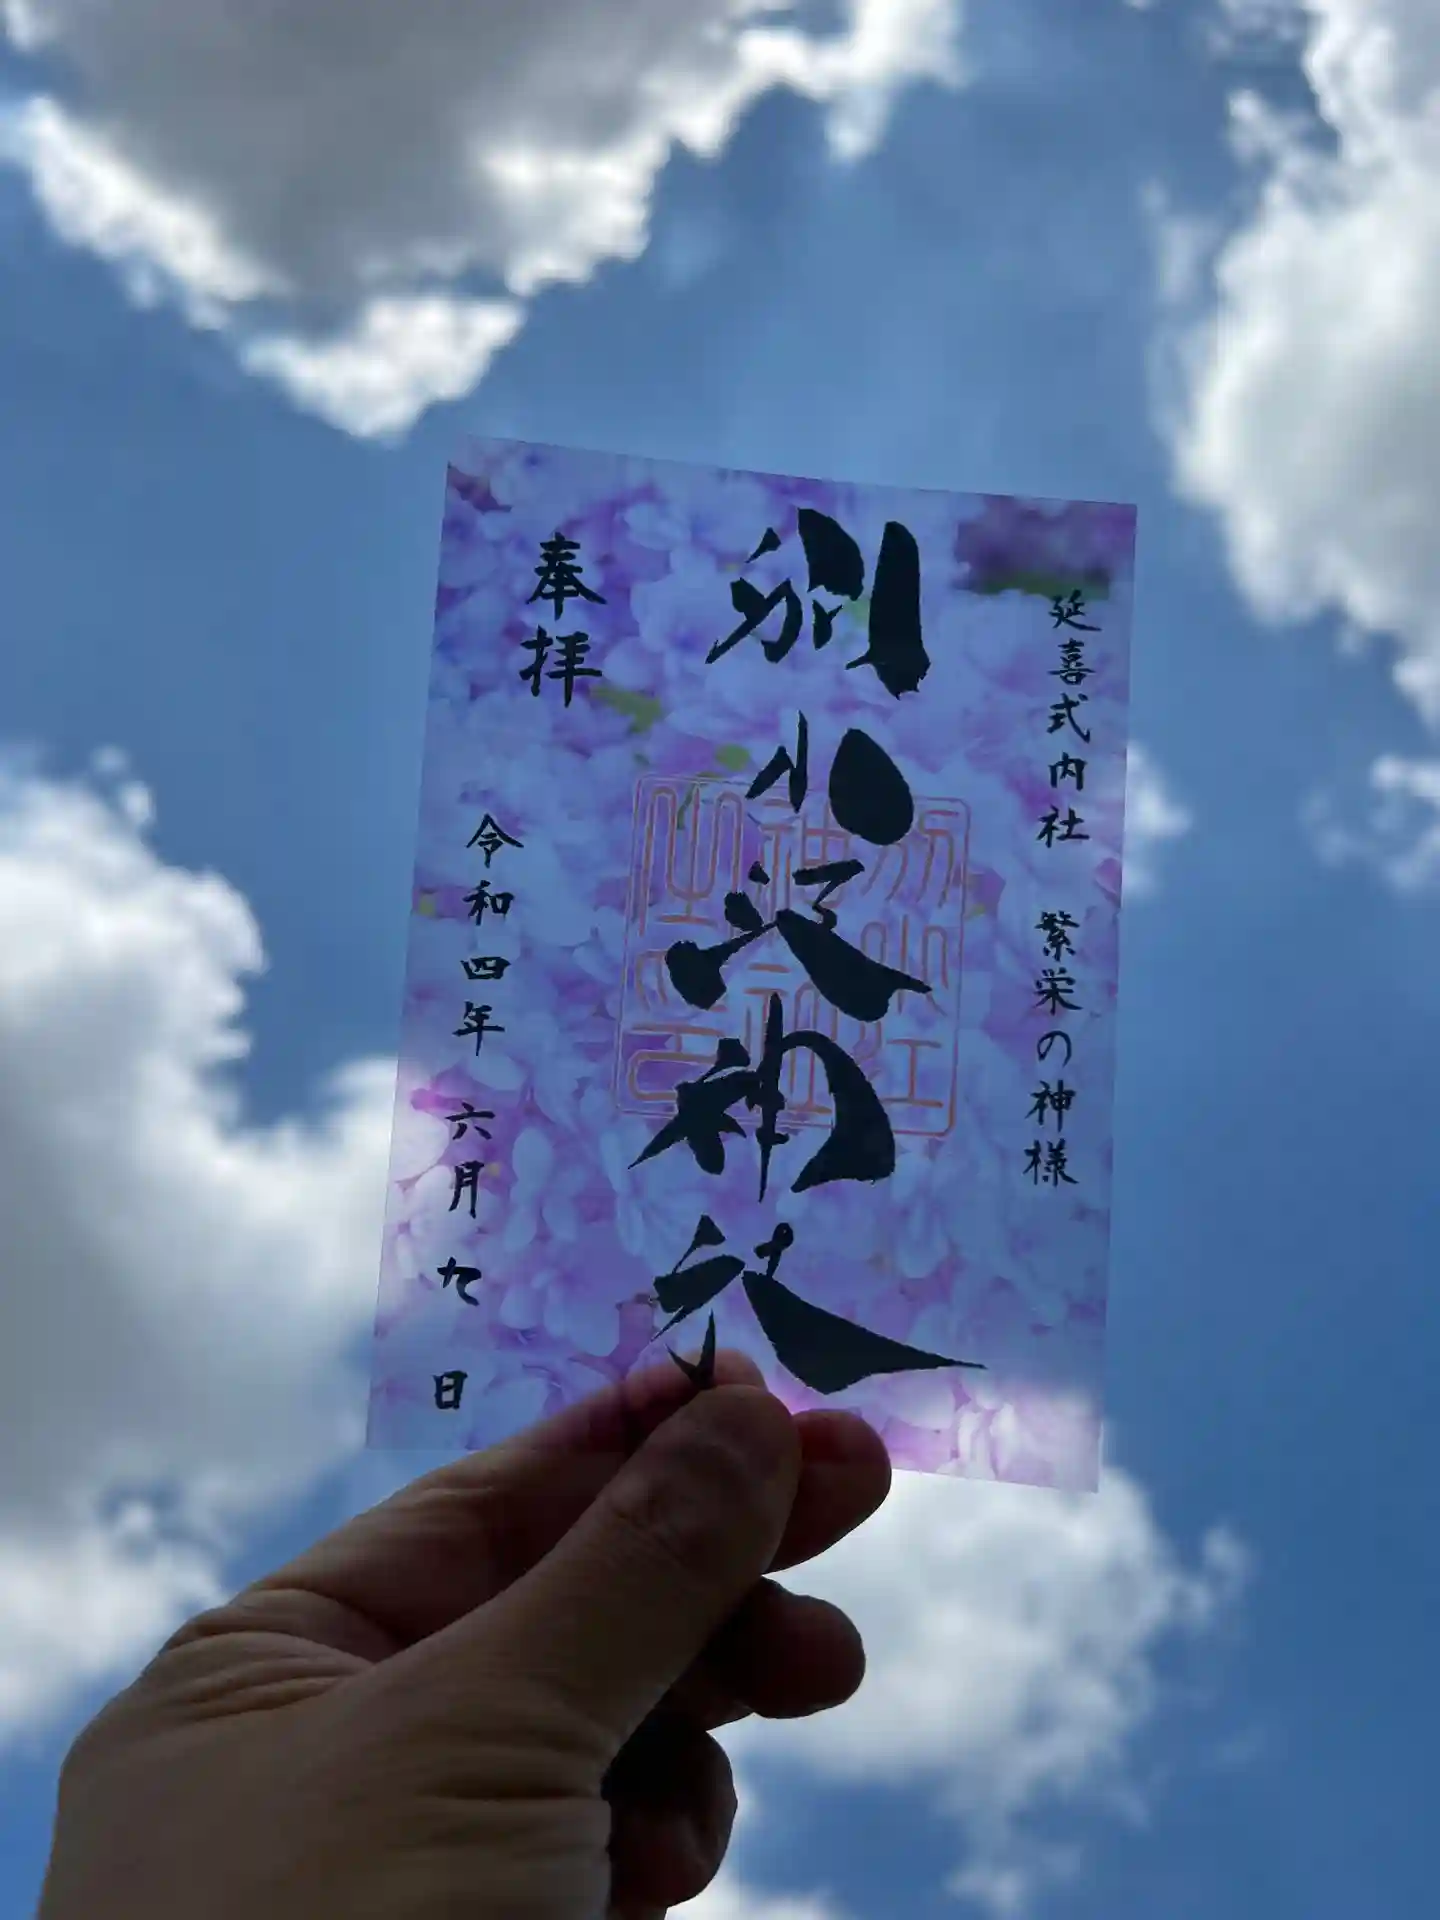 延喜式内社 繁栄の神様
別小江神社
奉拝
令和四年 六月 九日